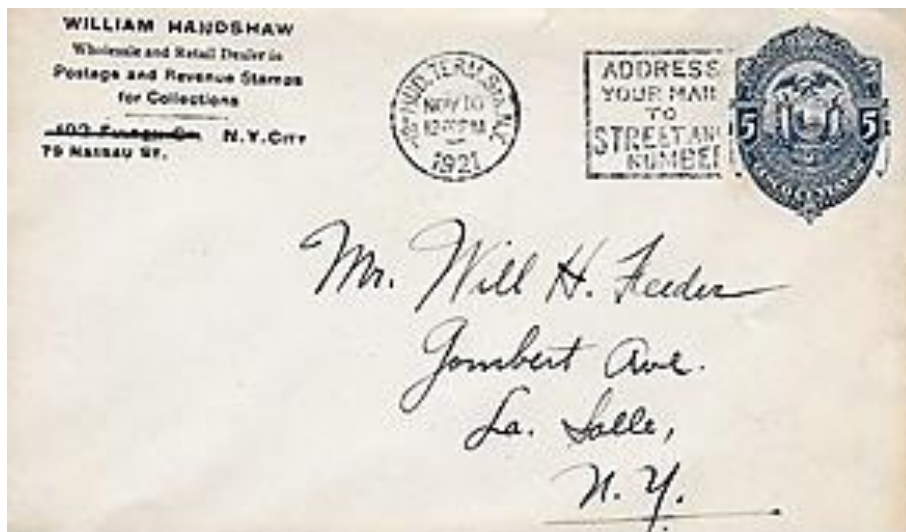 WILLIAM HANDSHAW
Wholesale and Retail Dealer in
Postage and Revenue Stamps
for Collections
N. Y. CITY
79 NASSAU ST.
HUD. TERM. STA. N.Y.
NOV 10
1921
ADDRESS
YOUR MAIL
TO
STREET AND
NUMBER
5 5
Mr. Will H. Feeder
Gombert Ave.
La. Salle,
N. Y.